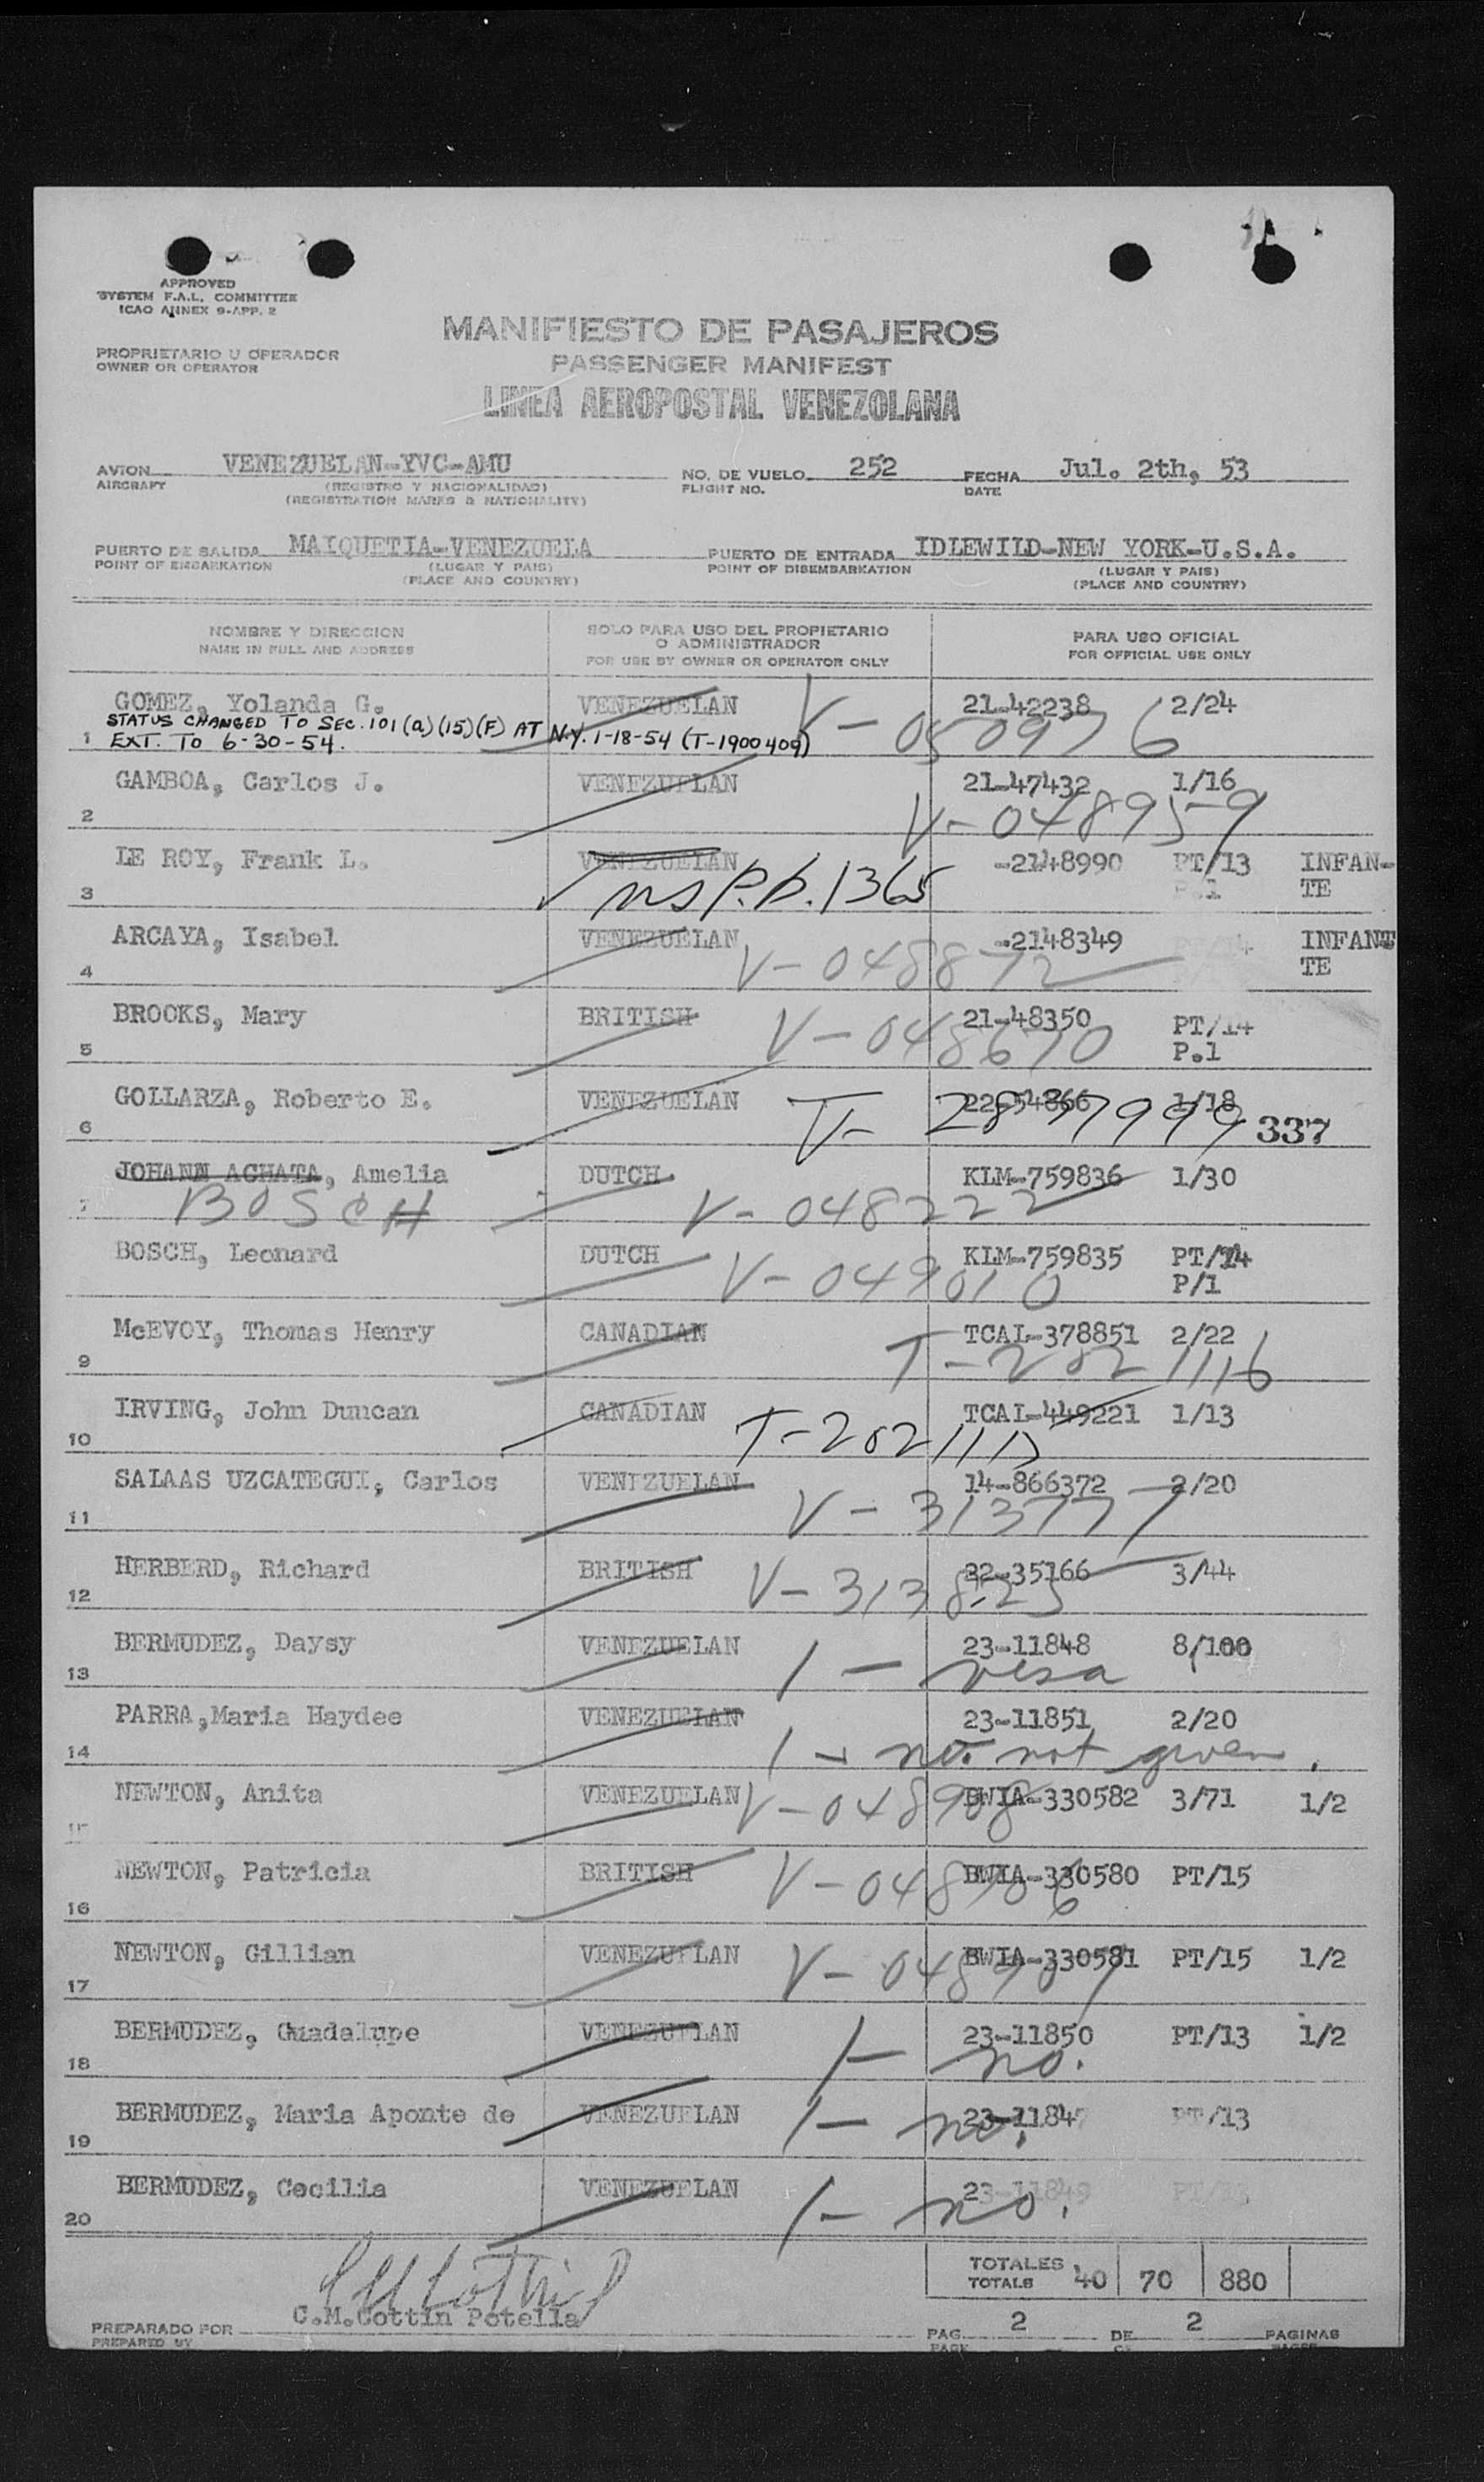 APPROVED
SYSTEM F.A.L. COMMITTEE
ICAO ANNEX 9-APP. 2
PROPRIETARIO U OPERADOR
OWNER OR OPERATOR
MANIFIESTO DE PASAJEROS
PASSENGER MANIFEST
LINEA AEROPOSTAL VENEZOLANA
AVION VENEZUELAN-YVC-AMU NO. DE VUELO 252 FECHA Jul. 2th, 53
AIRCRAFT (REGISTRO Y NACIONALIDAD) FLIGHT NO. DATE
(REGISTRATION MARKS & NATIONALITY)
PUERTO DE SALIDA MAIQUETIA-VENEZUELA PUERTO DE ENTRADA IDLEWILD-NEW YORK-U.S.A.
POINT OF EMBARKATION (LUGAR Y PAIS) POINT OF DISEMBARKATION (LUGAR Y PAIS)
(PLACE AND COUNTRY) (PLACE AND COUNTRY)
NOMBRE Y DIRECCION SOLO PARA USO DEL PROPIETARIO O ADMINISTRADOR PARA USO OFICIAL
NAME IN FULL AND ADDRESS FOR USE BY OWNER OR OPERATOR ONLY FOR OFFICIAL USE ONLY
GOMEZ, Yolanda G. VENEZUELAN 21-42238 2/24
STATUS CHANGED TO SEC. 101 (a) (15) (F) AT N.Y. 1-18-54 (T-1900409) V-050976
1 EXT. TO 6-30-54.
GAMBOA, Carlos J. VENEZUELAN 21-47432 1/16
2 V-048959
LE ROY, Frank L. VENEZUELAN -2148990 PT/13 INFAN-
3 P.1 TE
1365
ARCAYA, Isabel VENEZUELAN -2148349 INFANT
4 V-048872 TE
BROOKS, Mary BRITISH 21-48350 PT/14
5 V-048670 P.1
GOLLARZA, Roberto E. VENEZUELAN 22-54866 1/18
6 337
JOHANN ACHATA, Amelia DUTCH KLM-759836 1/30
7 BOSCH V-048222
BOSCH, Leonard DUTCH KLM-759835 PT/14
V-049010 P/1
McEVOY, Thomas Henry CANADIAN TCAL-378851 2/22
9 T-2021116
IRVING, John Duncan CANADIAN TCAL-449221 1/13
10
SALAAS UZCATEGUI, Carlos VENEZUELAN 14-866372 2/20
11 V-313777
HERBERD, Richard BRITISH 22-35166 3/44
12 V-313825
BERMUDEZ, Daysy VENEZUELAN 23-11848 8/100
13 1 - visa
PARRA,Maria Haydee VENEZUELAN 23-11851 2/20
14 1 - no. not given.
NEWTON, Anita VENEZUELAN BWIA-330582 3/71 1/2
15 V-048908
NEWTON, Patricia BRITISH BWIA-330580 PT/15
16 V-048906
NEWTON, Gillian VENEZUELAN BWIA-330581 PT/15 1/2
17 V-048907
BERMUDEZ, Guadalupe VENEZUELAN 23-11850 PT/13 1/2
18 1- no.
BERMUDEZ, Maria Aponte de VENEZUELAN 23-11847 PT/13
19 1- no.
BERMUDEZ, Cecilia VENEZUELAN 23-11849 PT/13
20 1- no.
TOTALES
TOTALS 40 70 880
C.M.Cottin Potella
PREPARADO POR PAG. 2 DE 2 PAGINAS
PREPARED BY PAGE PAGES